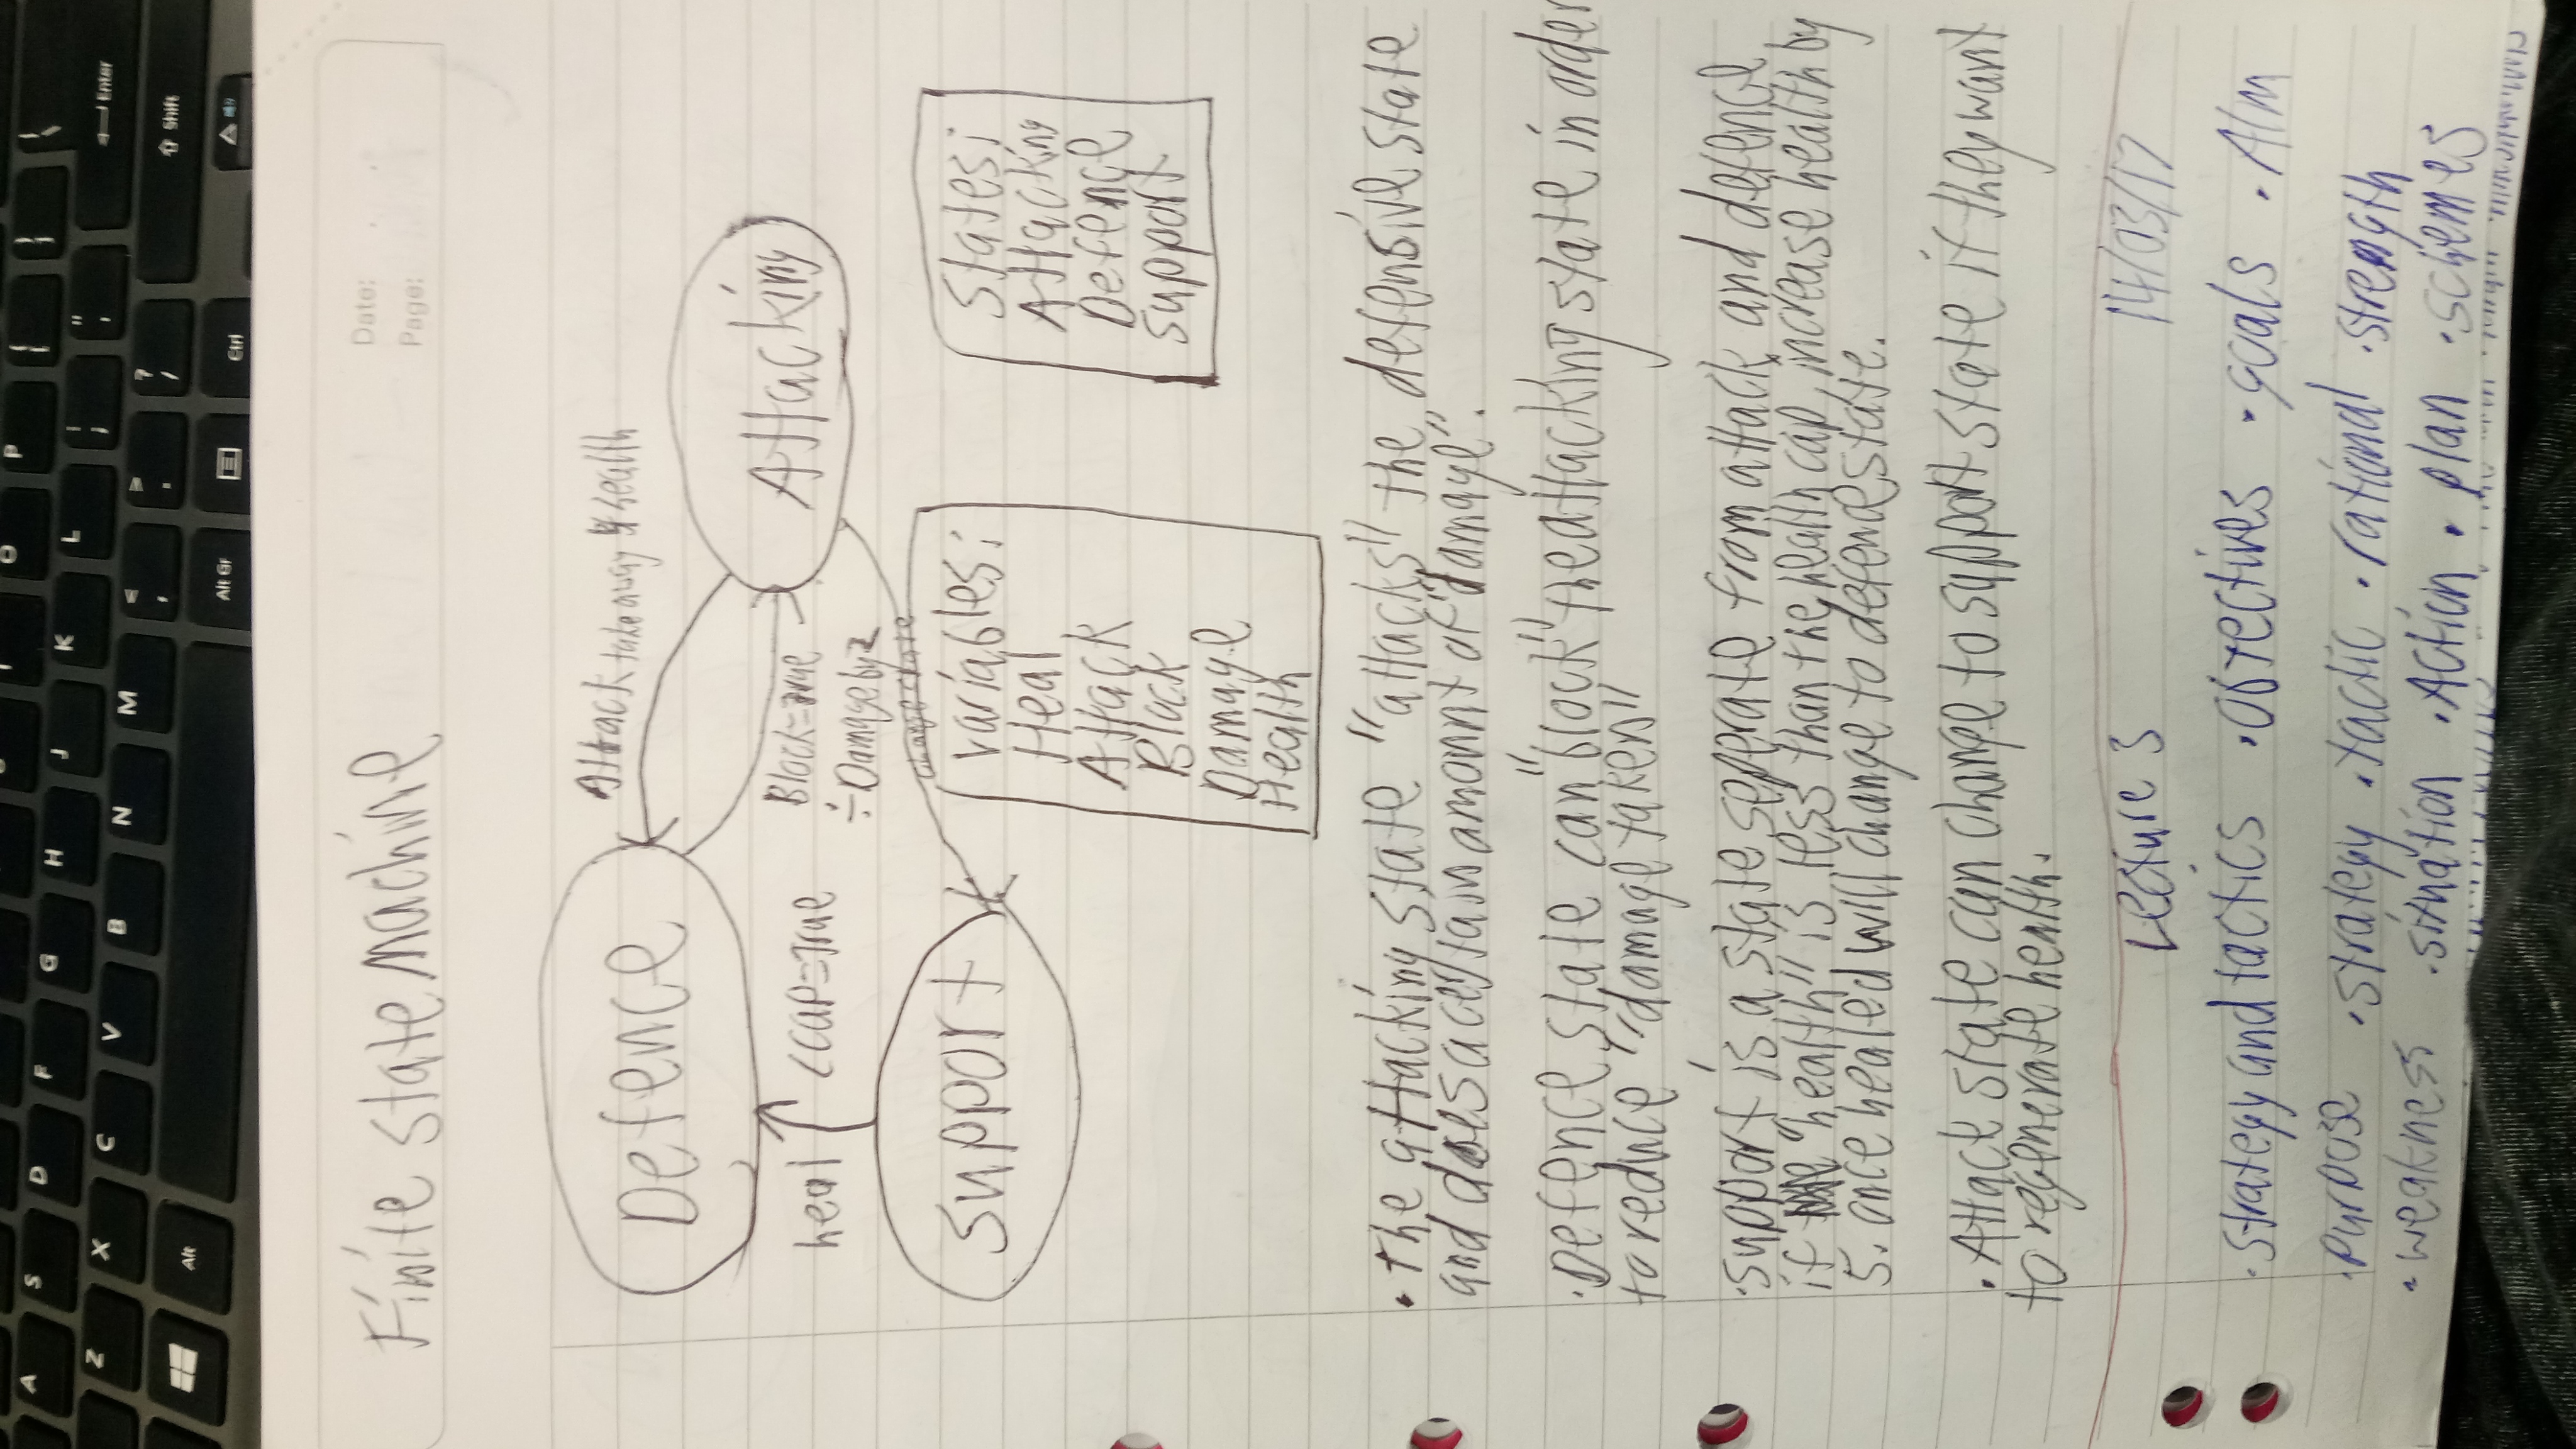 O P { }
A S D F G H J K L : ; " ' Enter
Z X C V B N M < , > . ? / Shift
Alt Alt Gr Ctrl
Finite state machine
Date:
Page:
Defence
Attack take away health
Attacking
heal <CAP=True
Block=True
÷Damage by 2
change state
support
variables;
Heal
Attack
Block
Damage
Health
States;
Attacking
Defence
support
• The attacking state "attacks" the defensive state
and does a certain amount of "damage".
• Defence state can "block" the attacking state in order
to reduce "damage taken"
• support is a state seperate from attack and defence
if "health" is less than the health cap, increase health by
5. once healed will change to defence state.
• Attack state can change to support state if they want
to regenerate health.
Lecture 3 14/03/17
• strategy and tactics • objectives • goals • AIm
• purpose • strategy • tactic • rational • strength
• weakness • situation • Action • plan • schemes